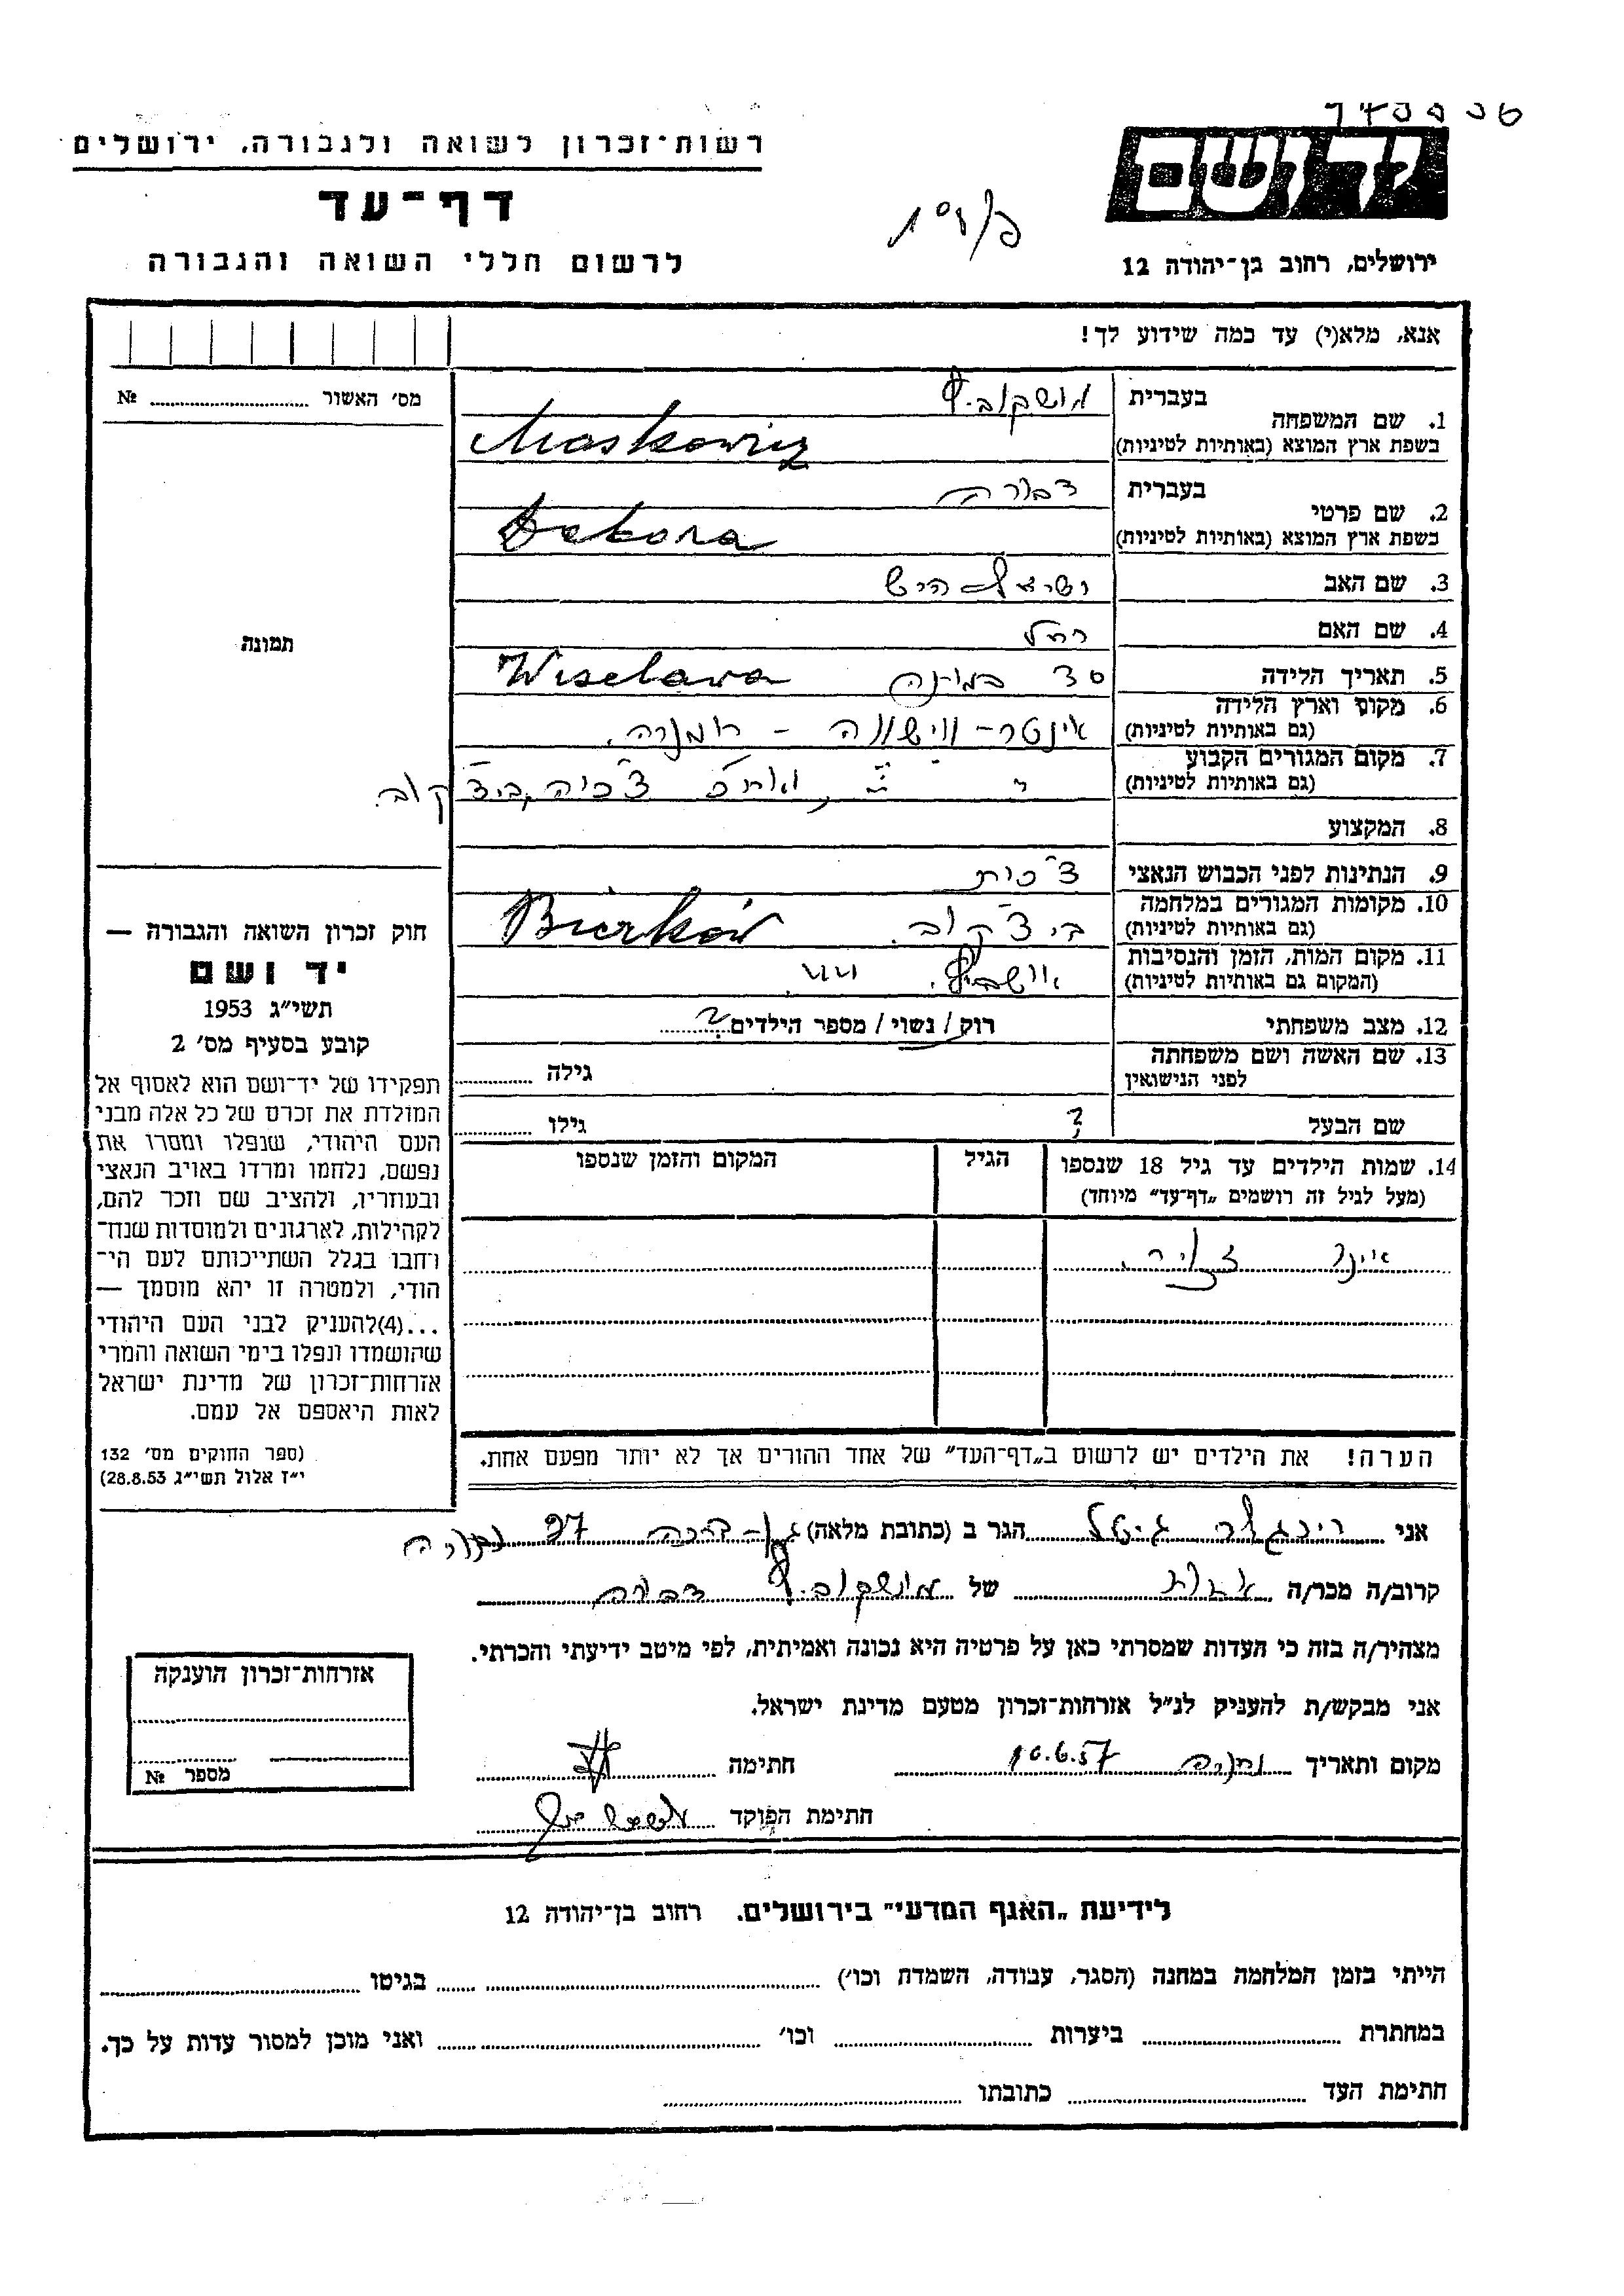 רשות־זכרון לשואה ולגבורה, ירושלים
דף־עד
לרשום חללי השואה והגבורה
ידושם
ירושלים, רחוב בן־יהודה 12
אנא, מלא(י) עד כמה שידוע לך!
מס׳ האשור № ........
תמונה
1. שם המשפחה
בעברית מושקוביץ
בשפת ארץ המוצא (באותיות לטיניות) Moskowicz
2. שם פרטי
בעברית דבורה
בשפת ארץ המוצא (באותיות לטיניות) Debora
3. שם האב ישראל הירש
4. שם האם רחל
5. תאריך הלידה 30 במותה Wiselawa
6. מקום וארץ הלידה
(גם באותיות לטיניות) אינטר-ווישווה - רומניה.
7. מקום המגורים הקבוע
(גם באותיות לטיניות)
8. המקצוע
9. הנתינות לפני הכבוש הנאצי צ׳כית
10. מקומות המגורים במלחמה
(גם באותיות לטיניות) ביצ׳קוב. Bierków
11. מקום המות, הזמן והנסיבות
(המקום גם באותיות לטיניות) אושביץ. 44
12. מצב משפחתי רוק / נשוי / מספר הילדים 2
13. שם האשה ושם משפחתה
לפני הנישואין גילה ........
שם הבעל ? גילו ........
14. שמות הילדים עד גיל 18 שנספו הגיל המקום והזמן שנספו
(מעל לגיל זה רושמים „דף־עד״ מיוחד)
הערה! את הילדים יש לרשום ב„דף־העד״ של אחד ההורים אך לא יותר מפעם אחת.
חוק זכרון השואה והגבורה —
יד ושם
תשי״ג 1953
קובע בסעיף מס׳ 2
תפקידו של יד־ושם הוא לאסוף אל
המולדת את זכרם של כל אלה מבני
העם היהודי, שנפלו ומסרו את
נפשם, נלחמו ומרדו באויב הנאצי
ובעוזריו, ולהציב שם וזכר להם,
לקהילות, לארגונים ולמוסדות שנח־
רחבו בגלל השתייכותם לעם הי־
הודי, ולמטרה זו יהא מוסמך —
...(4)להעניק לבני העם היהודי
שהושמדו ונפלו בימי השואה והמרי
אזרחות־זכרון של מדינת ישראל
לאות היאספם אל עמם.
(ספר החוקים מס׳ 132
י״ז אלול תשי״ג 28.8.53)
אני גיטל הגר ב (כתובת מלאה) 97
קרוב/ה מכר/ה אחות של מושקוביץ דבורה
מצהיר/ה בזה כי העדות שמסרתי כאן על פרטיה היא נכונה ואמיתית, לפי מיטב ידיעתי והכרתי.
אני מבקש/ת להעניק לנ״ל אזרחות־זכרון מטעם מדינת ישראל.
מקום ותאריך 10.6.57 חתימה
חתימת הפוקד
אזרחות־זכרון הוענקה
מספר №
לידיעת „האגף המדעי״ בירושלים. רחוב בן־יהודה 12
הייתי בזמן המלחמה במחנה (הסגר, עבודה, השמדת וכו׳) ........ בגיטו ........
במחתרת ........ ביערות ........ וכו׳ ........ ואני מוכן למסור עדות על כך.
חתימת העד ........ כתובתו ........